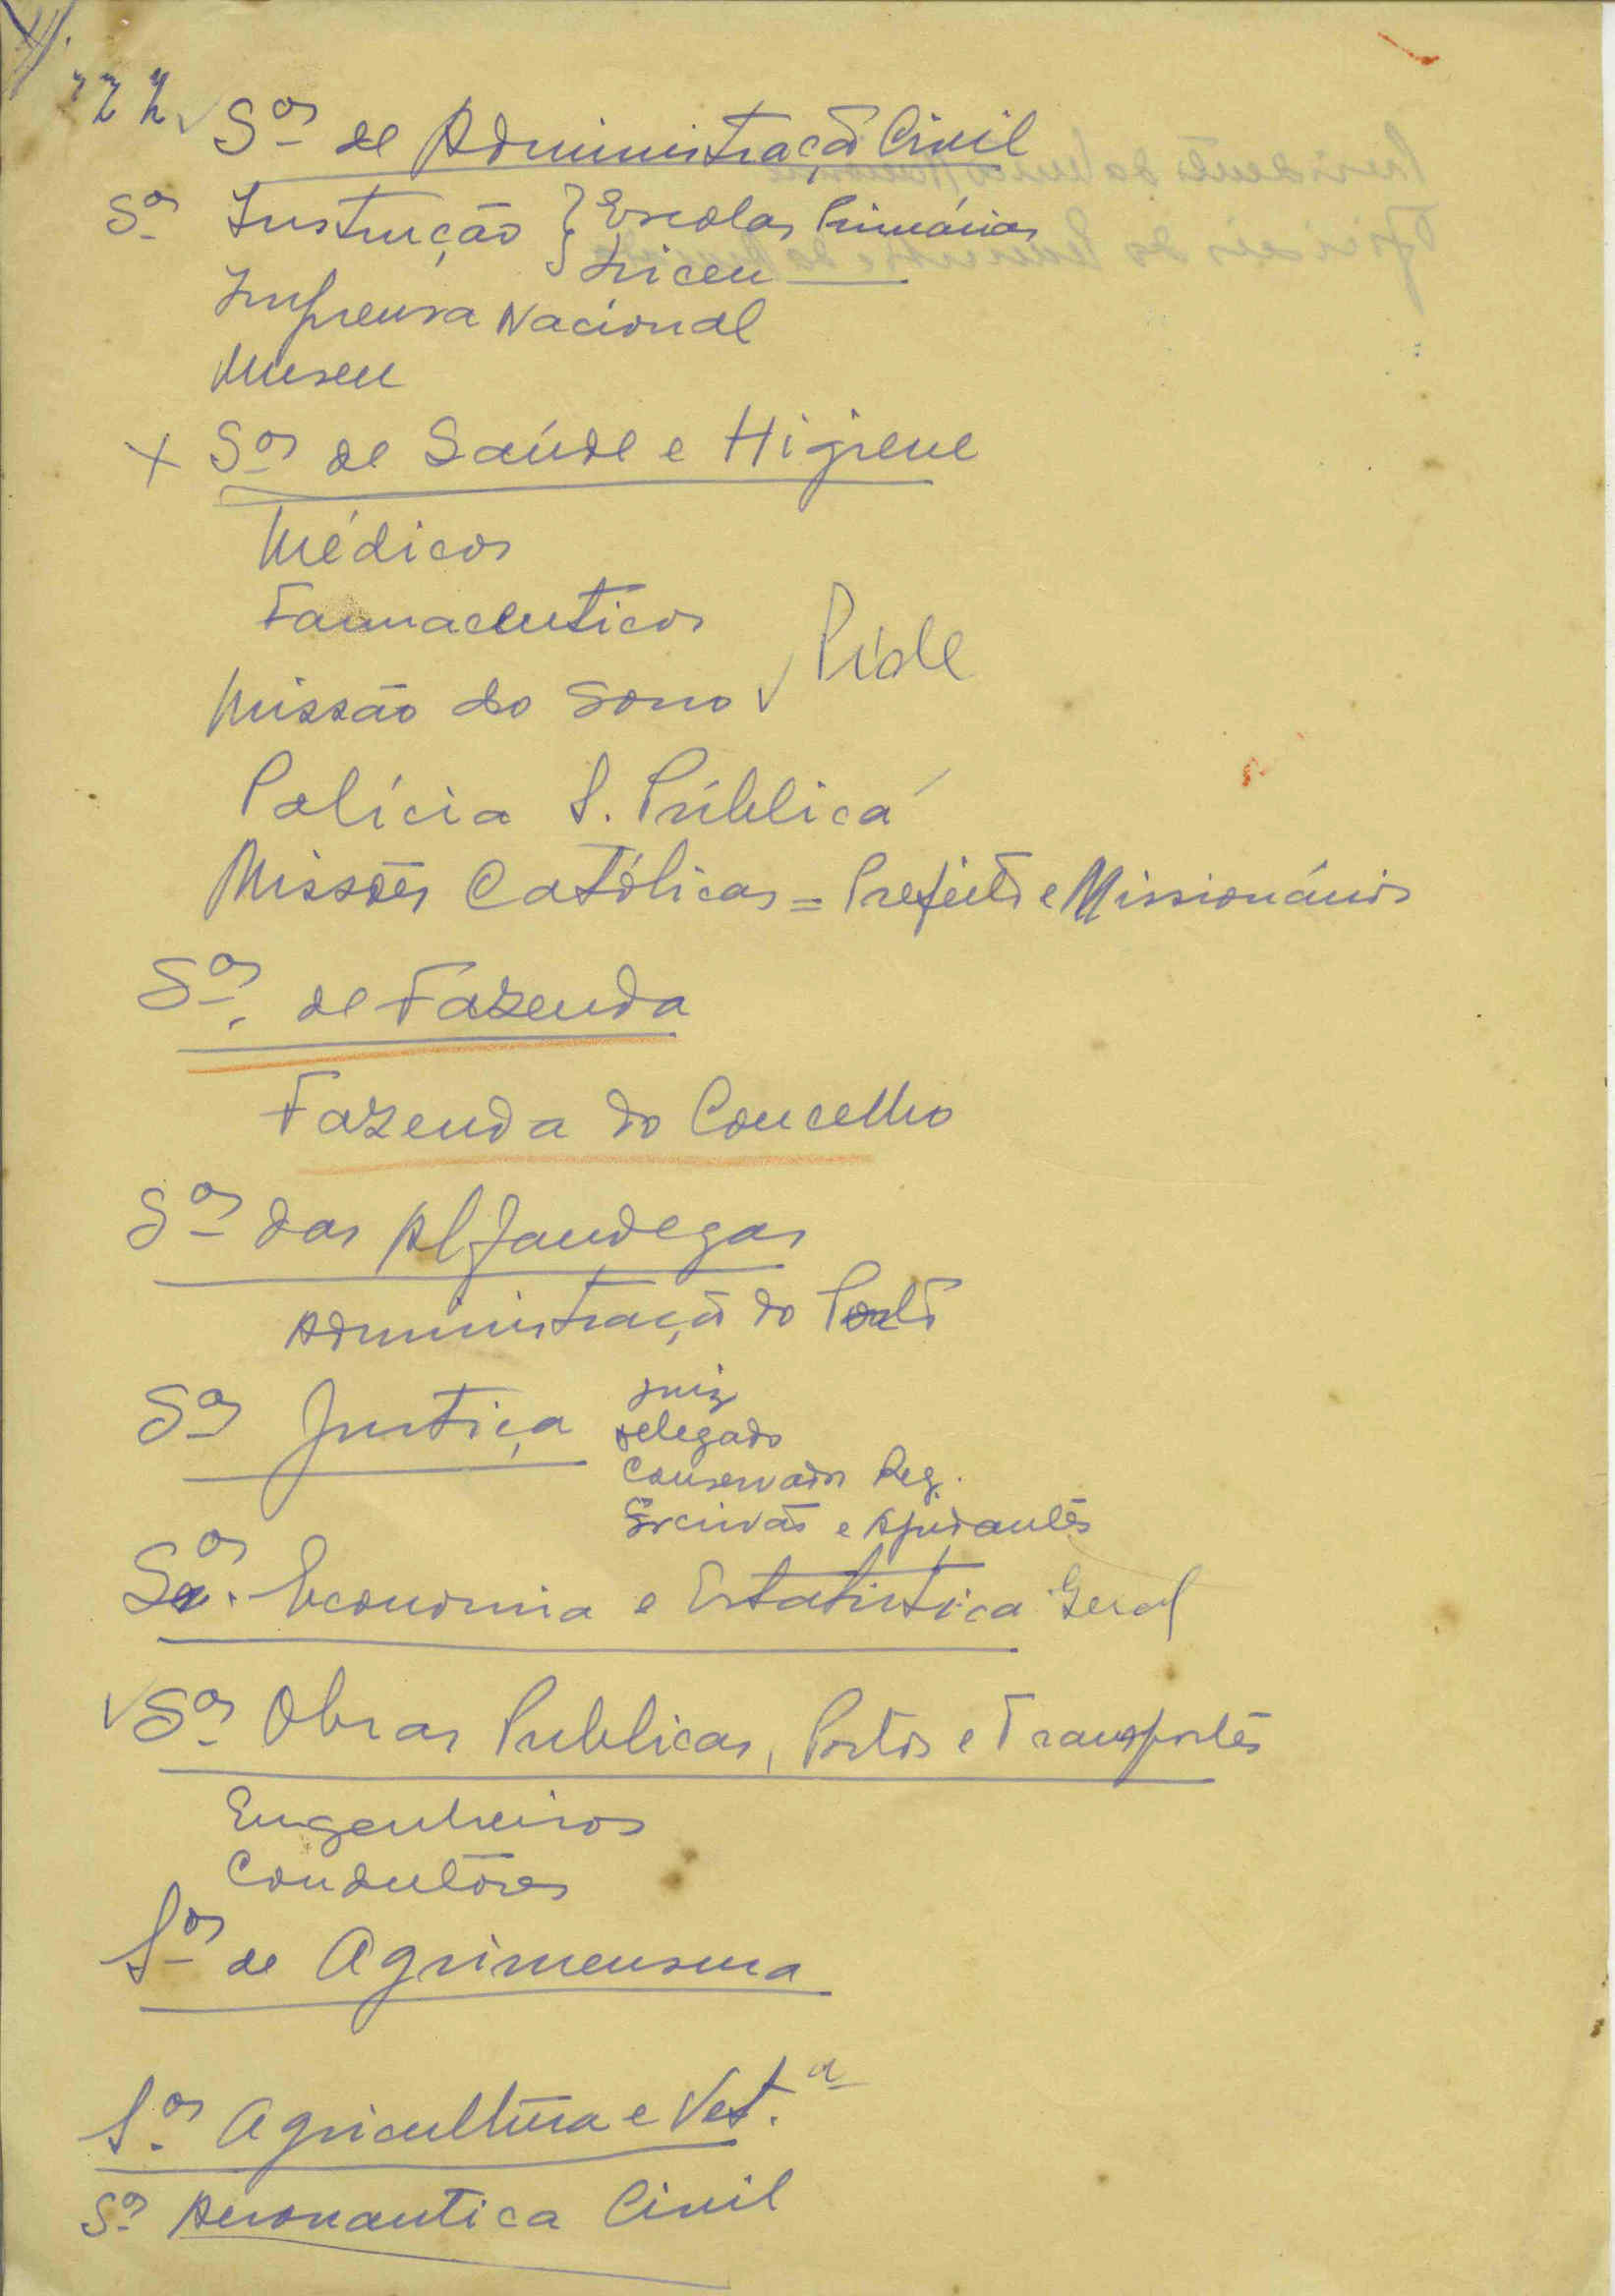 Sos de Administração Civil
Sos Instrução } Escolas Primárias
Liceu
Imprensa Nacional
Museu
X Sos de Saúde e Higiene
Médicos
Farmaceuticos
Pide
Missão do Sono
Polícia S. Pública
Missões Católicas = Prefeito e Missionários
Sos de Fazenda
Fazenda do Concelho
Sos das Alfandegas
Administração do Porto
Sos Justiça
Juiz
Delegado
Conservador Reg.
Escrivão e Ajudantes
Sos. Economia e Estatistica Geral
Sos Obras Publicas, Portos e Transportes
Engenheiros
Condutores
Sos de Agrimensura
Sos Agricultura e Vet.a
Sos Aeronautica Civil